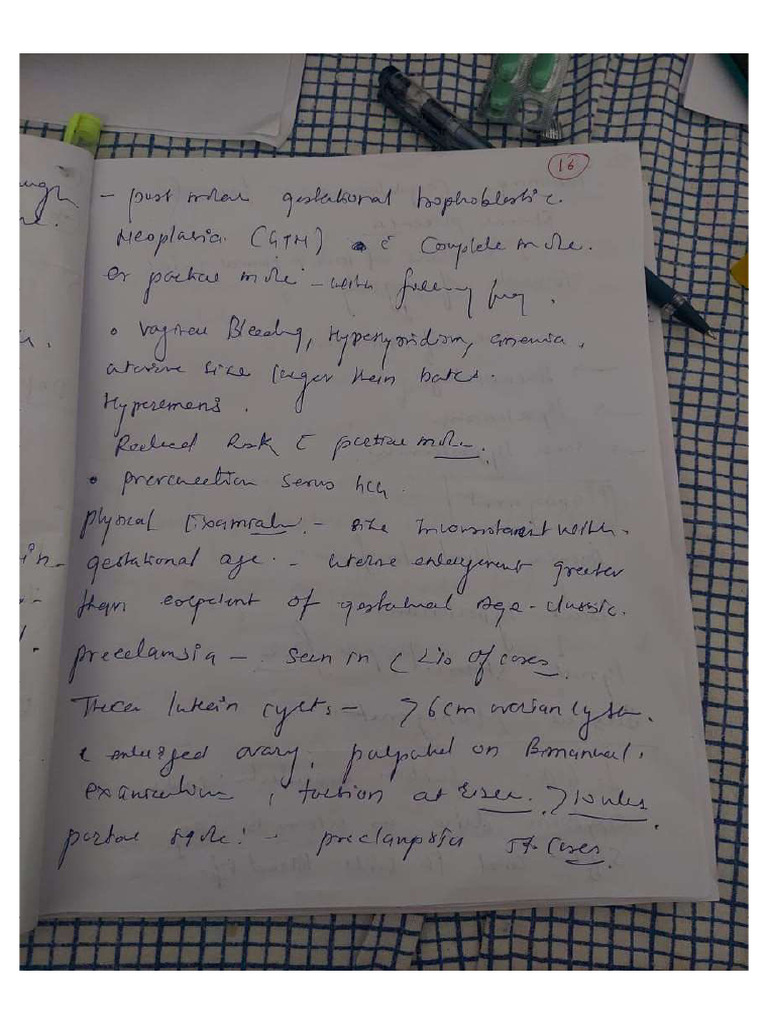 16
ough
- post molar gestational trophoblastic
Neoplasia (GTN) c̄ Complete mole.
or partial mole - with following
• vaginal Bleeding, Hyperthyroidism, anemia,
uterine size larger than dates.
Hyperemesis.
Reduced Risk c̄ partial mole.
• preevacuation serum hCG.
physical Examination - size Inconsistent with
gestational age - uterine enlargement greater
than expected of gestational Age - classic.
preeclamsia - seen in < 2% of cases.
Theca lutein cysts - > 6cm ovarian cyst
c̄ enlarged ovary, palpated on Bimanual.
examination, at > 10 wks.
partial mole: - preclampsia 5% Cases.